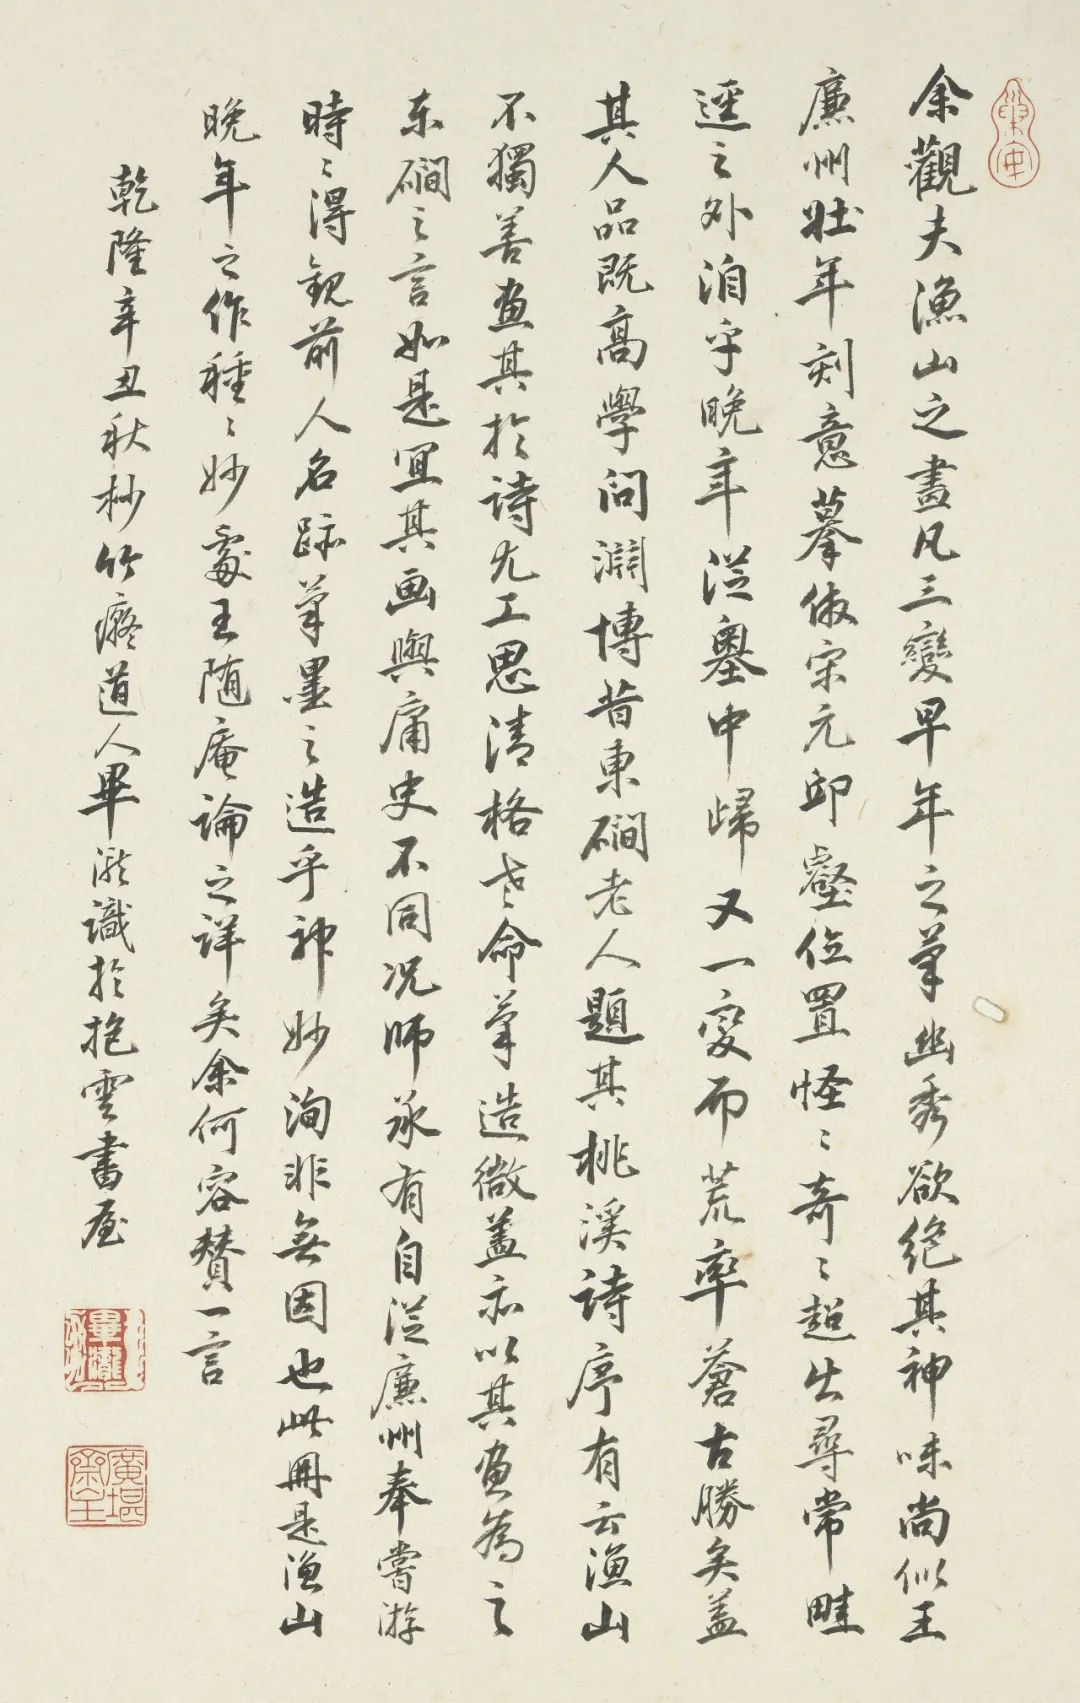 余觀夫漁山之畫凡三變早年之筆幽秀欲絕其神味尚似王
廉州壯年刻意摹倣宋元邱壑位置怪〻奇〻超出尋常畦
逕之外洎乎晚年從墨中歸又一變而荒率蒼古勝矣蓋
其人品既高學問淵博昔東磵老人題其桃溪詩序有云漁山
不獨善畫其於詩尤工思清格老命筆造微蓋亦以其畫為之
东磵之言如是宜其画與庸史不同况師承有自從廉州奉嘗游
時〻得觀前人名跡筆墨之造乎神妙洵非無因也此冊是漁山
晚年之作種〻妙處王随庵論之详矣余何容贊一言
乾隆辛丑秋杪竹癡道人畢瀧識於抱雲書屋
畢瀧
廣堪齋主